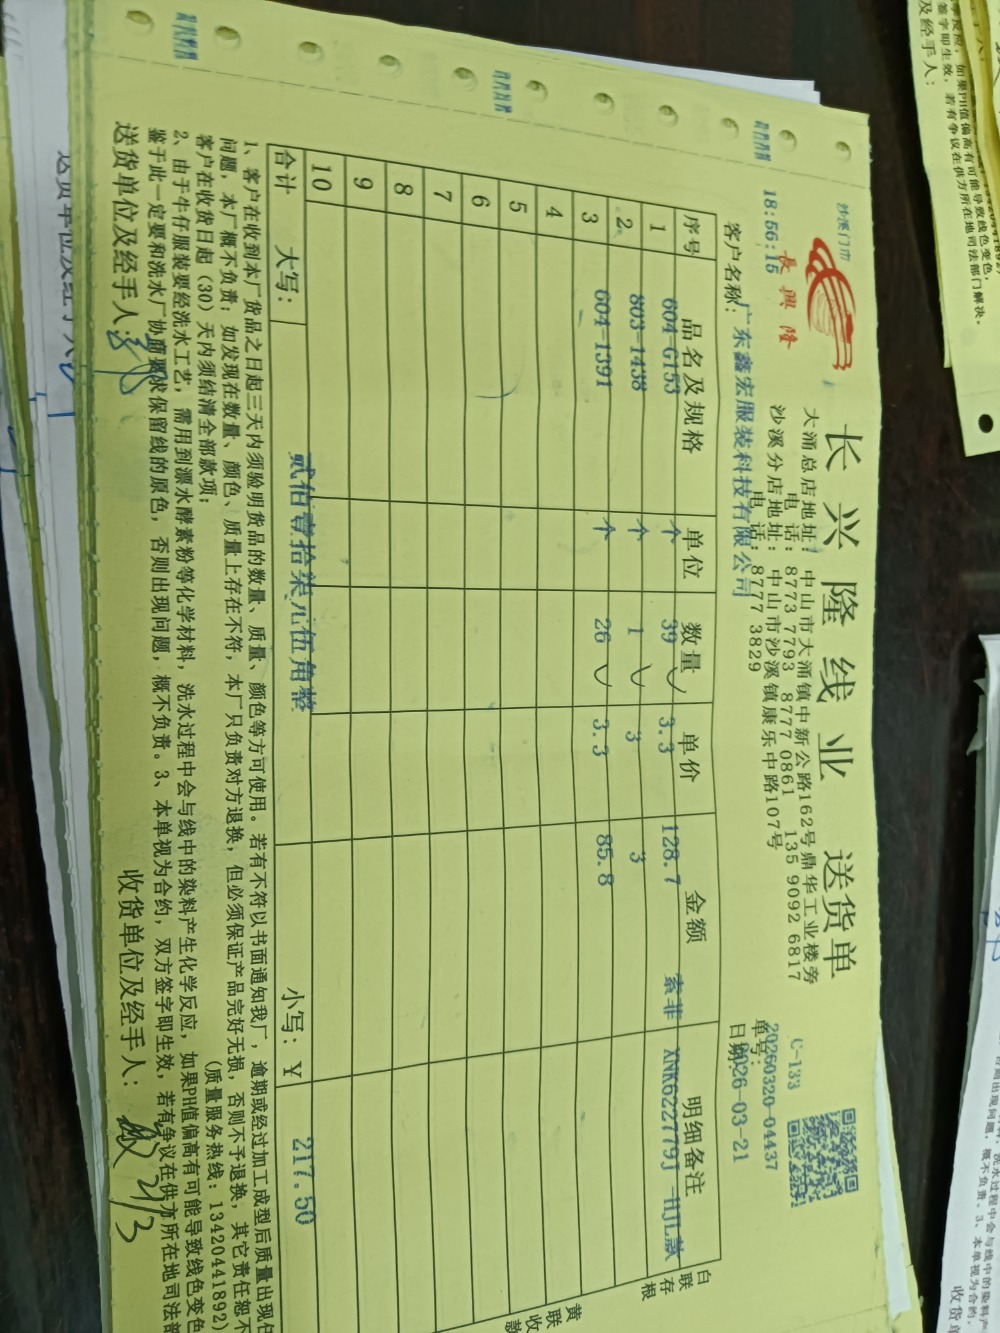 沙溪门市
18:56:15
長興隆
长兴隆线业 送货单
大涌总店地址：中山市大涌镇中新公路162号鼎华工业楼旁
电 话：8773 7793 8777 0861 135 9092 6817
沙溪分店地址：中山市沙溪镇康乐中路107号
电 话：8777 3829
C-133
单号：20260320-04437
客户名称：广东鑫宏服装科技有限公司
日期：2026-03-21
序号 品名及规格 单位 数量 单价 金额 明细备注
1 604-G153 个 39 3.3 128.7 索菲 XNK622779J HJL款
2 803-1438 个 1 3 3
3 604-1391 个 26 3.3 85.8
4
5
6
7
8
9
10
合计 大写： 贰佰壹拾柒元伍角整 小写：￥ 217.50
1、客户在收到本厂货品之日起三天内须验明货品的数量、质量、颜色等方可使用。若有不符以书面通知我厂，逾期或经过加工成型后质量出现任
问题，本厂概不负责；如发现在数量、颜色、质量上存在不符，本厂只负责对方退换，但必须保证产品完好无损，否则不予退换，其它责任恕不
客户在收货日起（30）天内须结清全部款项； （质量服务热线：13420441892）
2、由于牛仔服装要经洗水工艺，需用到漂水酵素粉等化学材料，洗水过程中会与线中的染料产生化学反应，如果PH值偏高有可能导致线色变色
鉴于此一定要和洗水厂协商要求保留线的原色，否则出现问题，概不负责。3、本单视为合约，双方签字即生效，若有争议在供方所在地司法部
送货单位及经手人： 收货单位及经手人： 21/3
白联存根
黄联收款
如果PH值偏高有可能导致线色变色，
签字即生效，若有争议在供方所在地司法部门解决。
及经手人：